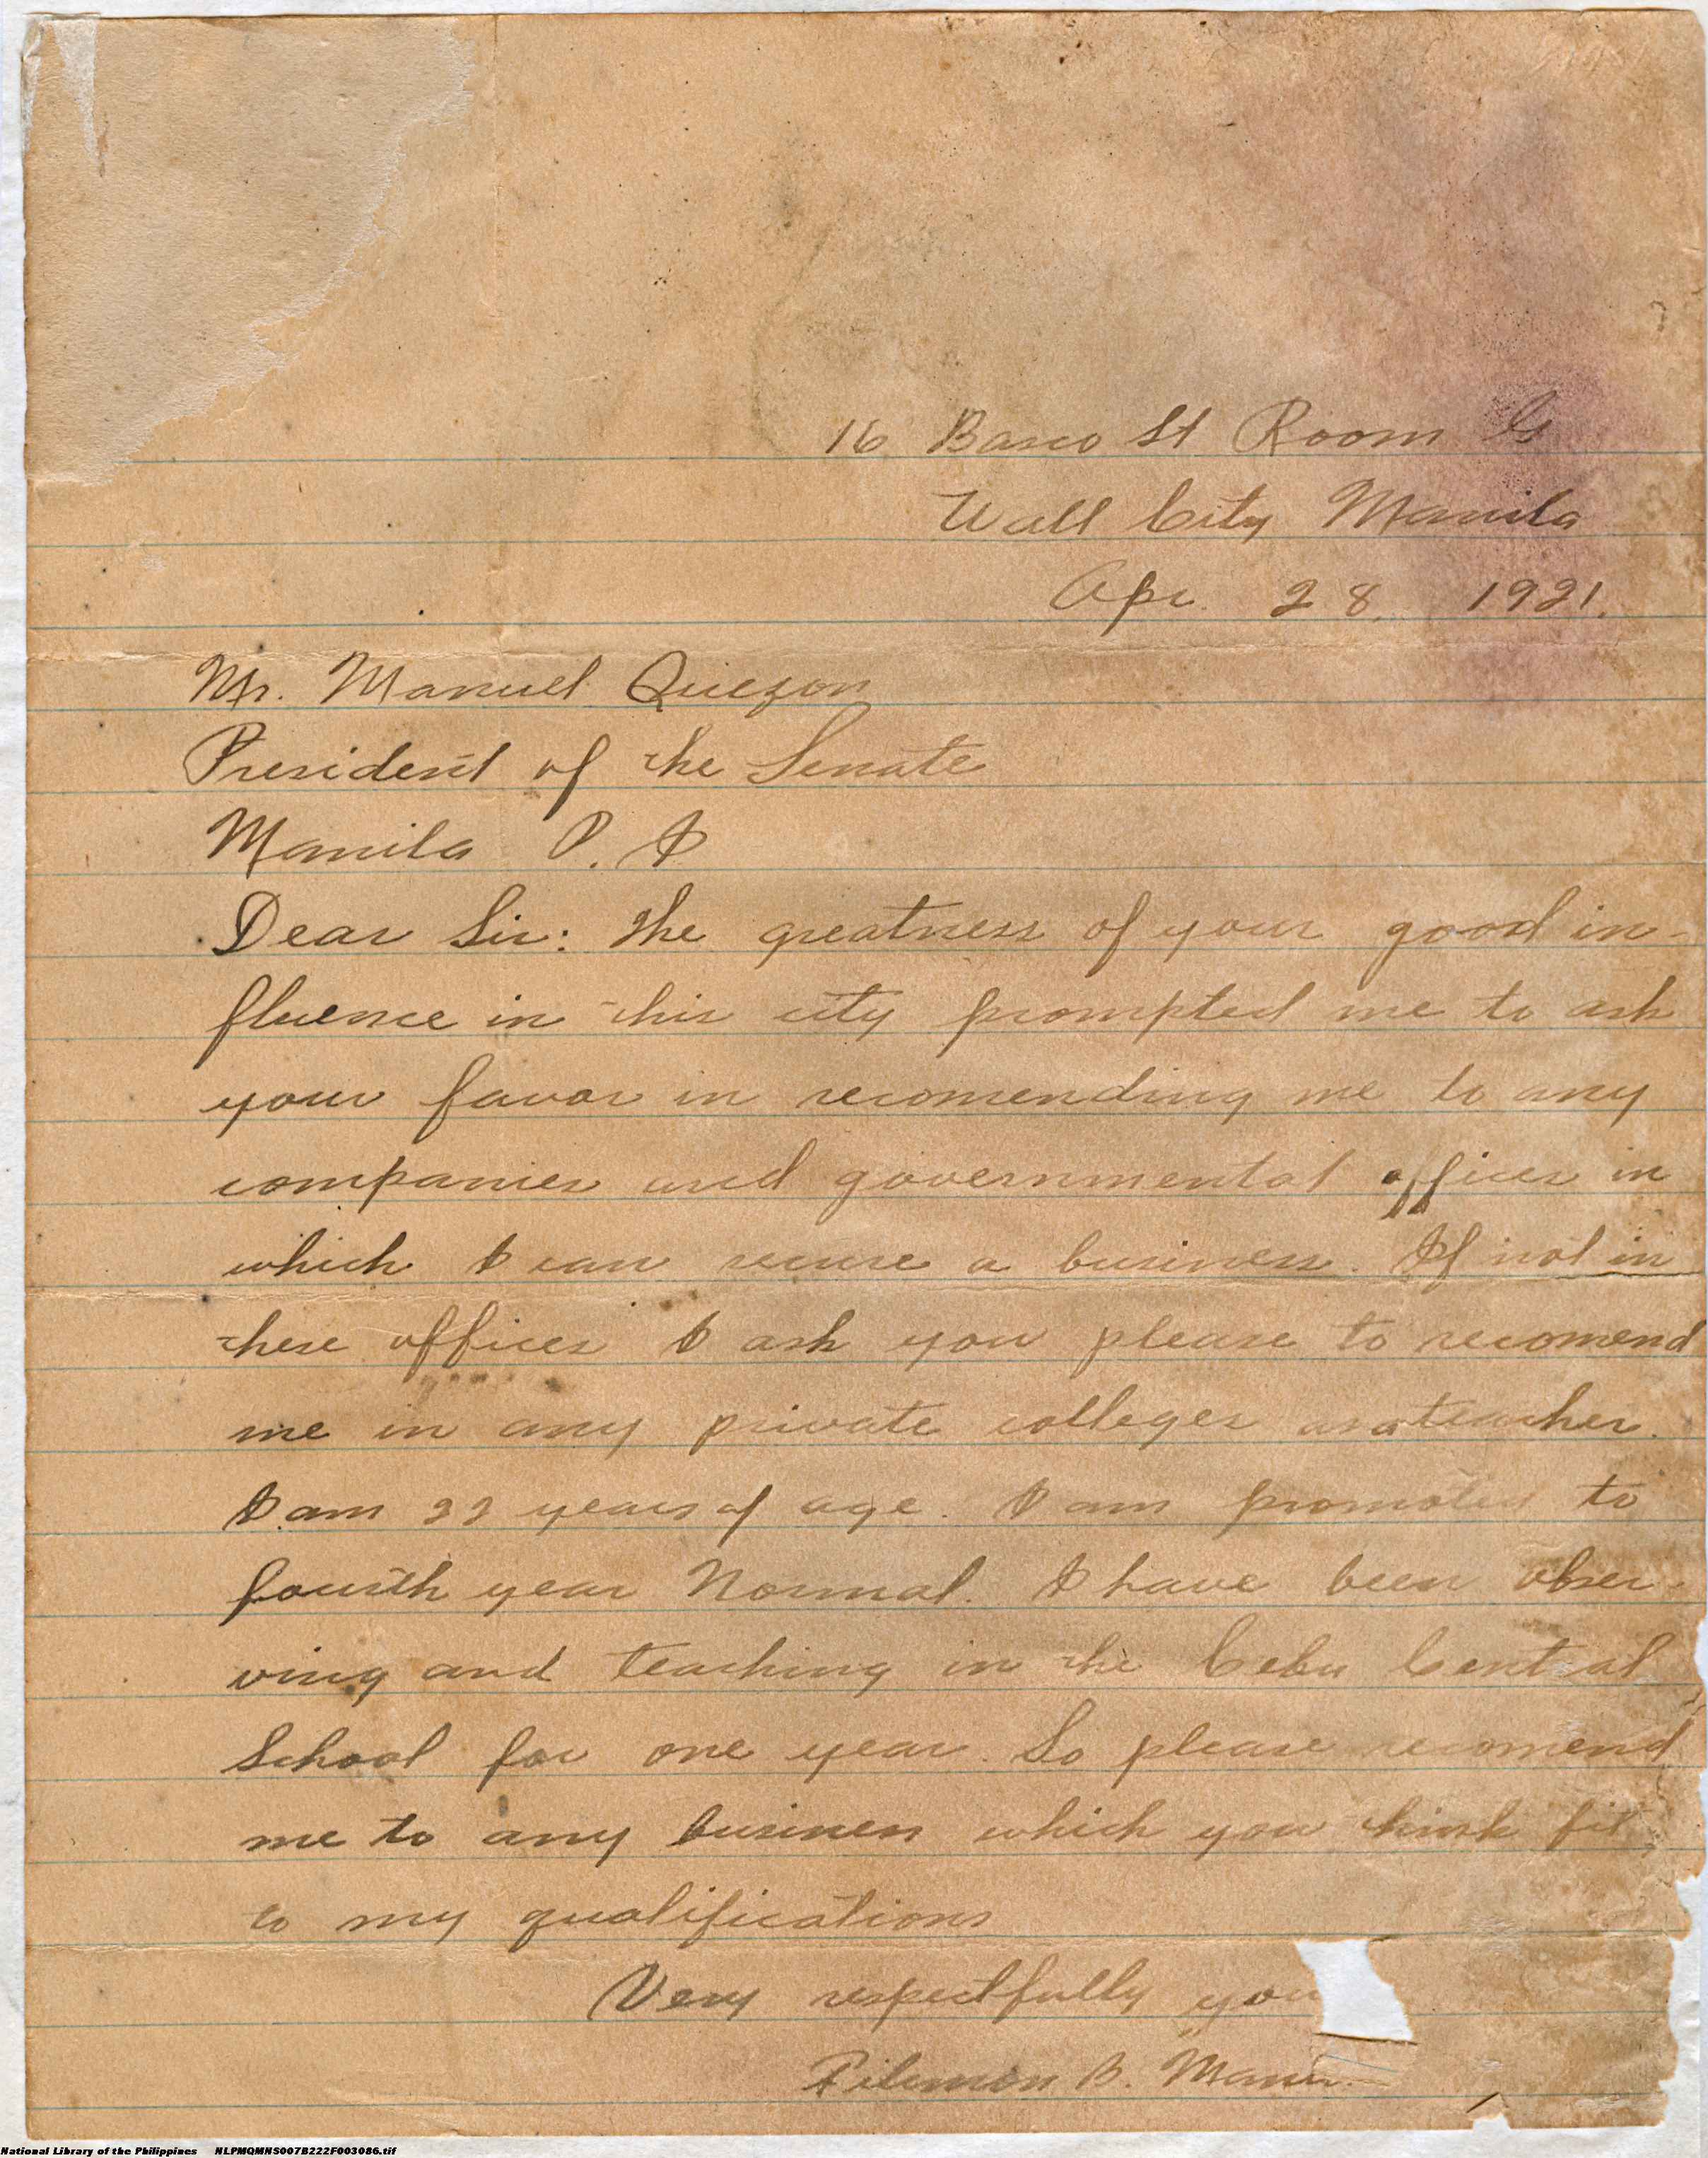 16 Basco St Room G
Wall City Manila
Apr. 28, 1921.
Mr. Manuel Quezon
President of the Senate
Manila P. I
Dear Sir: The greatness of your good in-
fluence in this city prompted me to ask
your favor in recomending me to any
companies and governmental offices in
which I can secure a business. If not in
these offices I ask you please to recomend
me in any private colleges as a teacher.
I am 22 years of age. I am promoted to
fourth year Normal. I have been obser-
ving and teaching in the Cebu Central
School for one year. So please recomend
me to any business which you think fit
to my qualifications
Very respectfully you
Filemon B.
National Library of the Philippines NLPMQMNS007B222F003086.tif